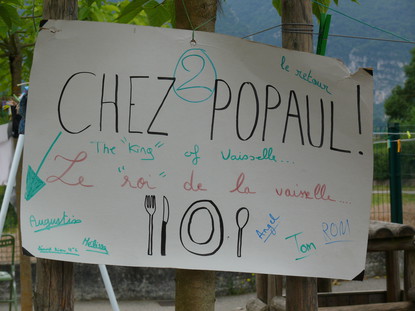 le retour
CHEZ 2 POPAUL !
The "King" of Vaisselle...
Le "roi" de la vaisselle...
Augustin
Angel
Tom
ROM